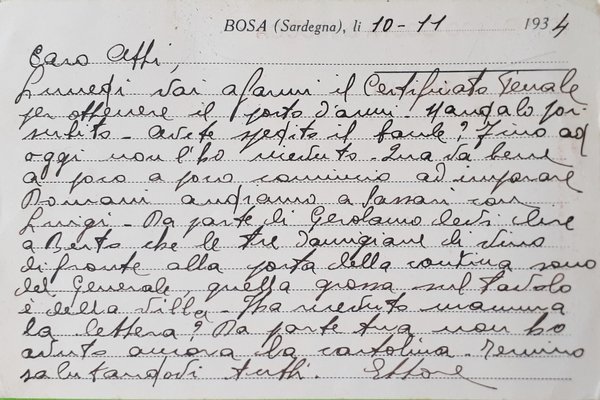 BOSA (Sardegna), li 10-11 1934
Caro Atti,
Lunedi vai a farmi il Certificato Penale
per ottenere il porto d'armi. Mandalo poi
subito. Avete spedito il baule? Fino ad
oggi non l'ho ricevuto. Qua va bene
a poco a poco comincio ad imparare
Domani andiamo a Sassari con
Luigi. Da parte di Gerolamo devi dire
a Berto che le tre damigiane di vino
di fronte alla porta della cantina sono
del Generale, quella grossa sul tavolo
è della Villa. Ha ricevuto mamma
la lettera? Da parte tua non ho
avuto ancora la cartolina. Termino
salutandovi tutti. Ettore